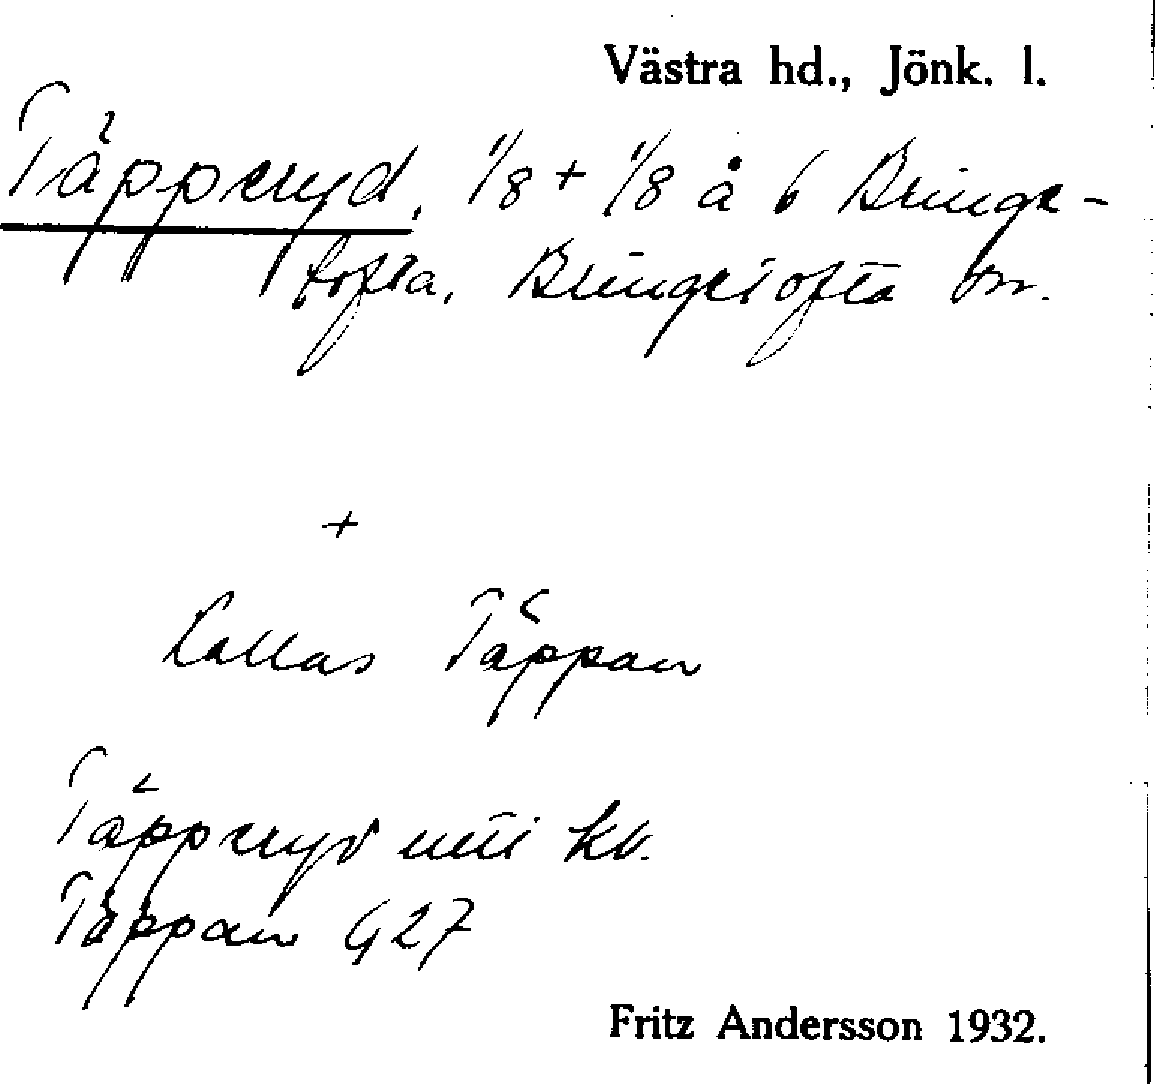 Västra hd., Jönk. l.
Täpperyd, 1/8 + 1/8 å 6 Bringe-
tofta, Bringetofta sn.
+
Kallas Täppan
Täpperyd kb.
Täppan G 27
Fritz Andersson 1932.